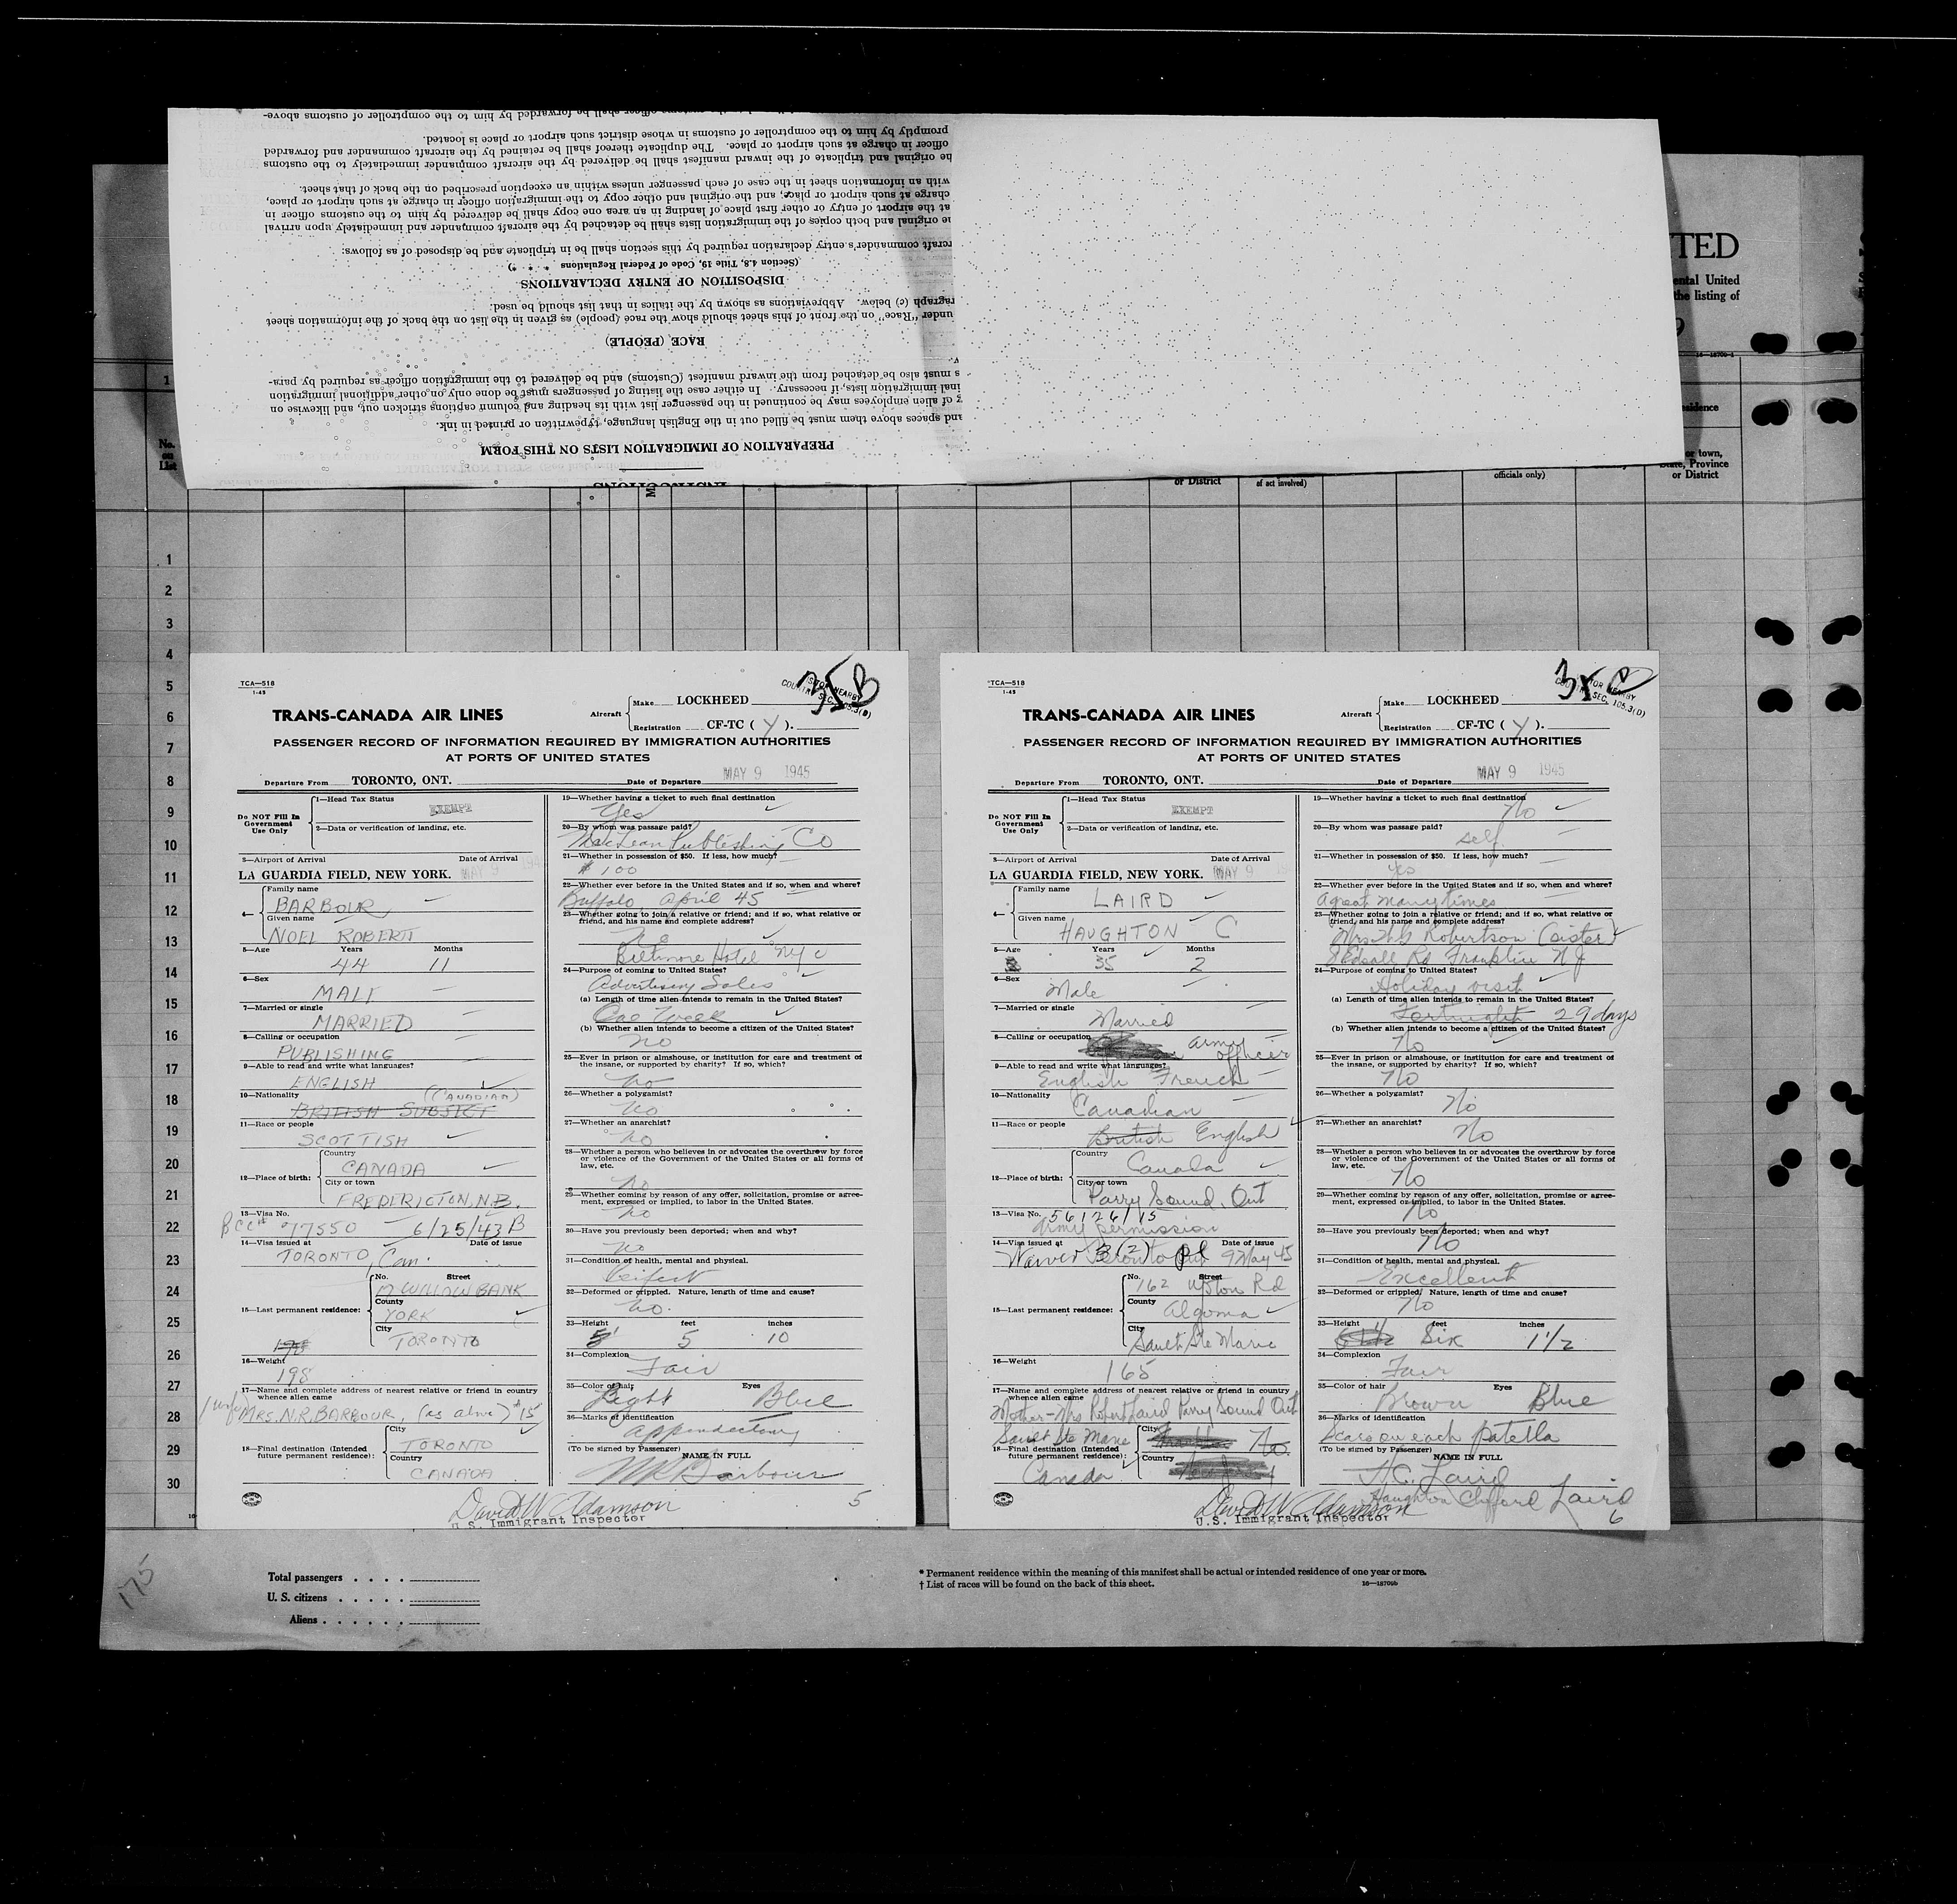 officer shall be forwarded by him to the comptroller of customs above-
promptly by him to the comptroller of customs in whose district such airport or place is located.
officer in charge at such airport or place. The duplicate thereof shall be retained by the aircraft commander and forwarded
he original and triplicate of the inward manifest shall be delivered by the aircraft commander immediately to the customs
with an information sheet in the case of each passenger unless within an exception prescribed on the back of that sheet.
charge at such airport or place; and the original and other copy to the immigration officer in charge at such airport or place,
at the airport of entry or other first place of landing in an area one copy shall be delivered by him to the customs officer in
he original and both copies of the immigration lists shall be detached by the aircraft commander and immediately upon arrival
rcraft commander's entry declaration required by this section shall be in triplicate and be disposed of as follows:
(Section 4.8, Title 19, Code of Federal Regulations * * *)
DISPOSITION OF ENTRY DECLARATIONS
ragraph (c) below. Abbreviations as shown by the italics in that list should be used.
under "Race" on the front of this sheet should show the race (people) as given in the list on the back of the information sheet
RACE (PEOPLE)
s must also be detached from the inward manifest (Customs) and be delivered to the immigration officer as required by para-
inal immigration lists, if necessary. In either case the listing of passengers must be done only on other additional immigration
g of alien employees may be continued in the passenger list with its heading and column captions stricken out, and likewise on
and spaces above them must be filled out in the English language, typewritten or printed in ink.
PREPARATION OF IMMIGRATION LISTS ON THIS FORM
INSTRUCTIONS
TED
ental United
the listing of
9
16—18709-1
sidence
or town,
State, Province
or District
1
No.
on
List
or District
of act involved)
officials only)
1
2
3
4
5
6
7
8
9
10
11
12
13
14
15
16
17
18
19
20
21
22
23
24
25
26
27
28
29
30
TCA—518
1-45
35B
VISITOR NEARBY
COUNTRY SEC. 105.3(D)
TRANS-CANADA AIR LINES
Aircraft
Make LOCKHEED
Registration CF-TC ( Y ).
PASSENGER RECORD OF INFORMATION REQUIRED BY IMMIGRATION AUTHORITIES
AT PORTS OF UNITED STATES
Departure From TORONTO, ONT. Date of Departure MAY 9 1945
Do NOT Fill In
Government
Use Only
1—Head Tax Status
EXEMPT
2—Data or verification of landing, etc.
3—Airport of Arrival Date of Arrival
LA GUARDIA FIELD, NEW YORK. MAY 9 194
4—
Family name
BARBOUR
Given name
NOEL ROBERT
5—Age Years Months
44 11
6—Sex
MALE
7—Married or single
MARRIED
8—Calling or occupation
PUBLISHING
9—Able to read and write what languages?
ENGLISH
10—Nationality (CANADIAN)
BRITISH SUBJECT
11—Race or people
SCOTTISH
12—Place of birth:
Country
CANADA
City or town
FREDERICTON, N.B.
13—Visa No.
BCC# 977550 6/25/43 B
14—Visa issued at Date of issue
TORONTO, Can.
15—Last permanent residence:
No. Street
17 WILLOWBANK
County
YORK
City
TORONTO
16—Weight
198
17—Name and complete address of nearest relative or friend in country
whence alien came
(wife) MRS. N.R. BARBOUR, (as above) #15
18—Final destination (Intended
future permanent residence):
City
TORONTO
Country
CANADA
19—Whether having a ticket to such final destination
Yes
20—By whom was passage paid?
MacLean Publishing Co
21—Whether in possession of $50. If less, how much?
$100
22—Whether ever before in the United States and if so, when and where?
Buffalo, April 45
23—Whether going to join a relative or friend; and if so, what relative or
friend, and his name and complete address?
no
Biltmore Hotel NYC
24—Purpose of coming to United States?
Advertising Sales
(a) Length of time alien intends to remain in the United States?
One Week
(b) Whether alien intends to become a citizen of the United States?
no
25—Ever in prison or almshouse, or institution for care and treatment of
the insane, or supported by charity? If so, which?
no
26—Whether a polygamist?
no
27—Whether an anarchist?
no
28—Whether a person who believes in or advocates the overthrow by force
or violence of the Government of the United States or all forms of
law, etc.
no
29—Whether coming by reason of any offer, solicitation, promise or agree-
ment, expressed or implied, to labor in the United States.
no
30—Have you previously been deported; when and why?
no
31—Condition of health, mental and physical.
Perfect
32—Deformed or crippled. Nature, length of time and cause?
no.
33—Height feet inches
5 10
34—Complexion
Fair
35—Color of hair Eyes
Light Blue
36—Marks of identification
Appendectomy
(To be signed by Passenger) NAME IN FULL
NR Barbour
David W Adamson 5
U.S. Immigrant Inspector
TCA—518
1-45
35B
VISITOR NEARBY
COUNTRY SEC. 105.3(D)
TRANS-CANADA AIR LINES
Aircraft
Make LOCKHEED
Registration CF-TC ( Y ).
PASSENGER RECORD OF INFORMATION REQUIRED BY IMMIGRATION AUTHORITIES
AT PORTS OF UNITED STATES
Departure From TORONTO, ONT. Date of Departure MAY 9 1945
Do NOT Fill In
Government
Use Only
1—Head Tax Status
EXEMPT
2—Data or verification of landing, etc.
3—Airport of Arrival Date of Arrival
LA GUARDIA FIELD, NEW YORK. MAY 9 19
4—
Family name
LAIRD
Given name
HAUGHTON C
5—Age Years Months
35 2
6—Sex
Male
7—Married or single
Married
8—Calling or occupation
army officer
9—Able to read and write what languages?
English French
10—Nationality
Canadian
11—Race or people
British English
12—Place of birth:
Country
Canada
City or town
Parry Sound, Ont
13—Visa No. 56126/15
Army permission
14—Visa issued at Date of issue
Waiver B (2) Toronto 9 May 45
15—Last permanent residence:
No. Street
162 Upton Rd
County
Algoma
City
Sault Ste Marie
16—Weight
165
17—Name and complete address of nearest relative or friend in country
whence alien came
Mother—Mrs Robert Laird Parry Sound Ont
Sault Ste Marie
18—Final destination (Intended
future permanent residence):
Canada
City
No.
Country
19—Whether having a ticket to such final destination
No
20—By whom was passage paid?
self
21—Whether in possession of $50. If less, how much?
yes
22—Whether ever before in the United States and if so, when and where?
a great many times
23—Whether going to join a relative or friend; and if so, what relative or
friend, and his name and complete address?
Robertson (sister)
Edsall Rd Franklin N J
24—Purpose of coming to United States?
Holiday visit
(a) Length of time alien intends to remain in the United States?
Fortnight 29 days
(b) Whether alien intends to become a citizen of the United States?
No
25—Ever in prison or almshouse, or institution for care and treatment of
the insane, or supported by charity? If so, which?
No
26—Whether a polygamist?
No
27—Whether an anarchist?
No
28—Whether a person who believes in or advocates the overthrow by force
or violence of the Government of the United States or all forms of
law, etc.
No
29—Whether coming by reason of any offer, solicitation, promise or agree-
ment, expressed or implied, to labor in the United States.
No
30—Have you previously been deported; when and why?
No
31—Condition of health, mental and physical.
Excellent
32—Deformed or crippled. Nature, length of time and cause?
No
33—Height feet inches
Six 1 1/2
34—Complexion
Fair
35—Color of hair Eyes
Brown Blue
36—Marks of identification
Scars on each patella
(To be signed by Passenger) NAME IN FULL
H.C. Laird
Haughton Clifford Laird
David W Adamson 6
U.S. Immigrant Inspector
175
Total passengers . . . .
U. S. citizens . . . . .
Aliens . . . . . .
* Permanent residence within the meaning of this manifest shall be actual or intended residence of one year or more.
† List of races will be found on the back of this sheet. 16—18709b